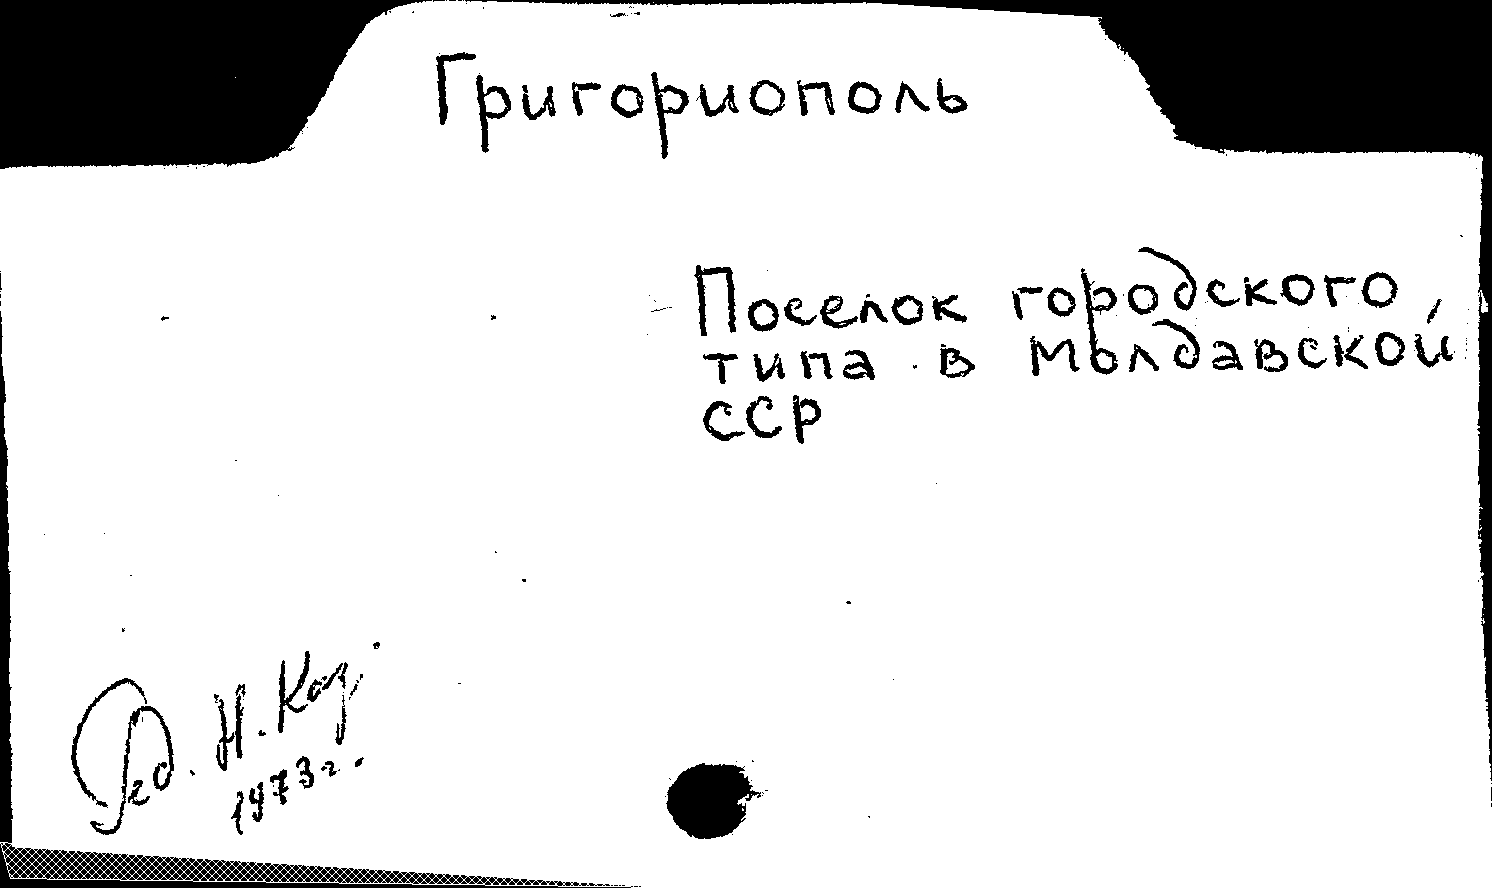 Григориополь
Поселок городского
типа в Молдавской
ССР
Ред. Н. Каз.
1973г.